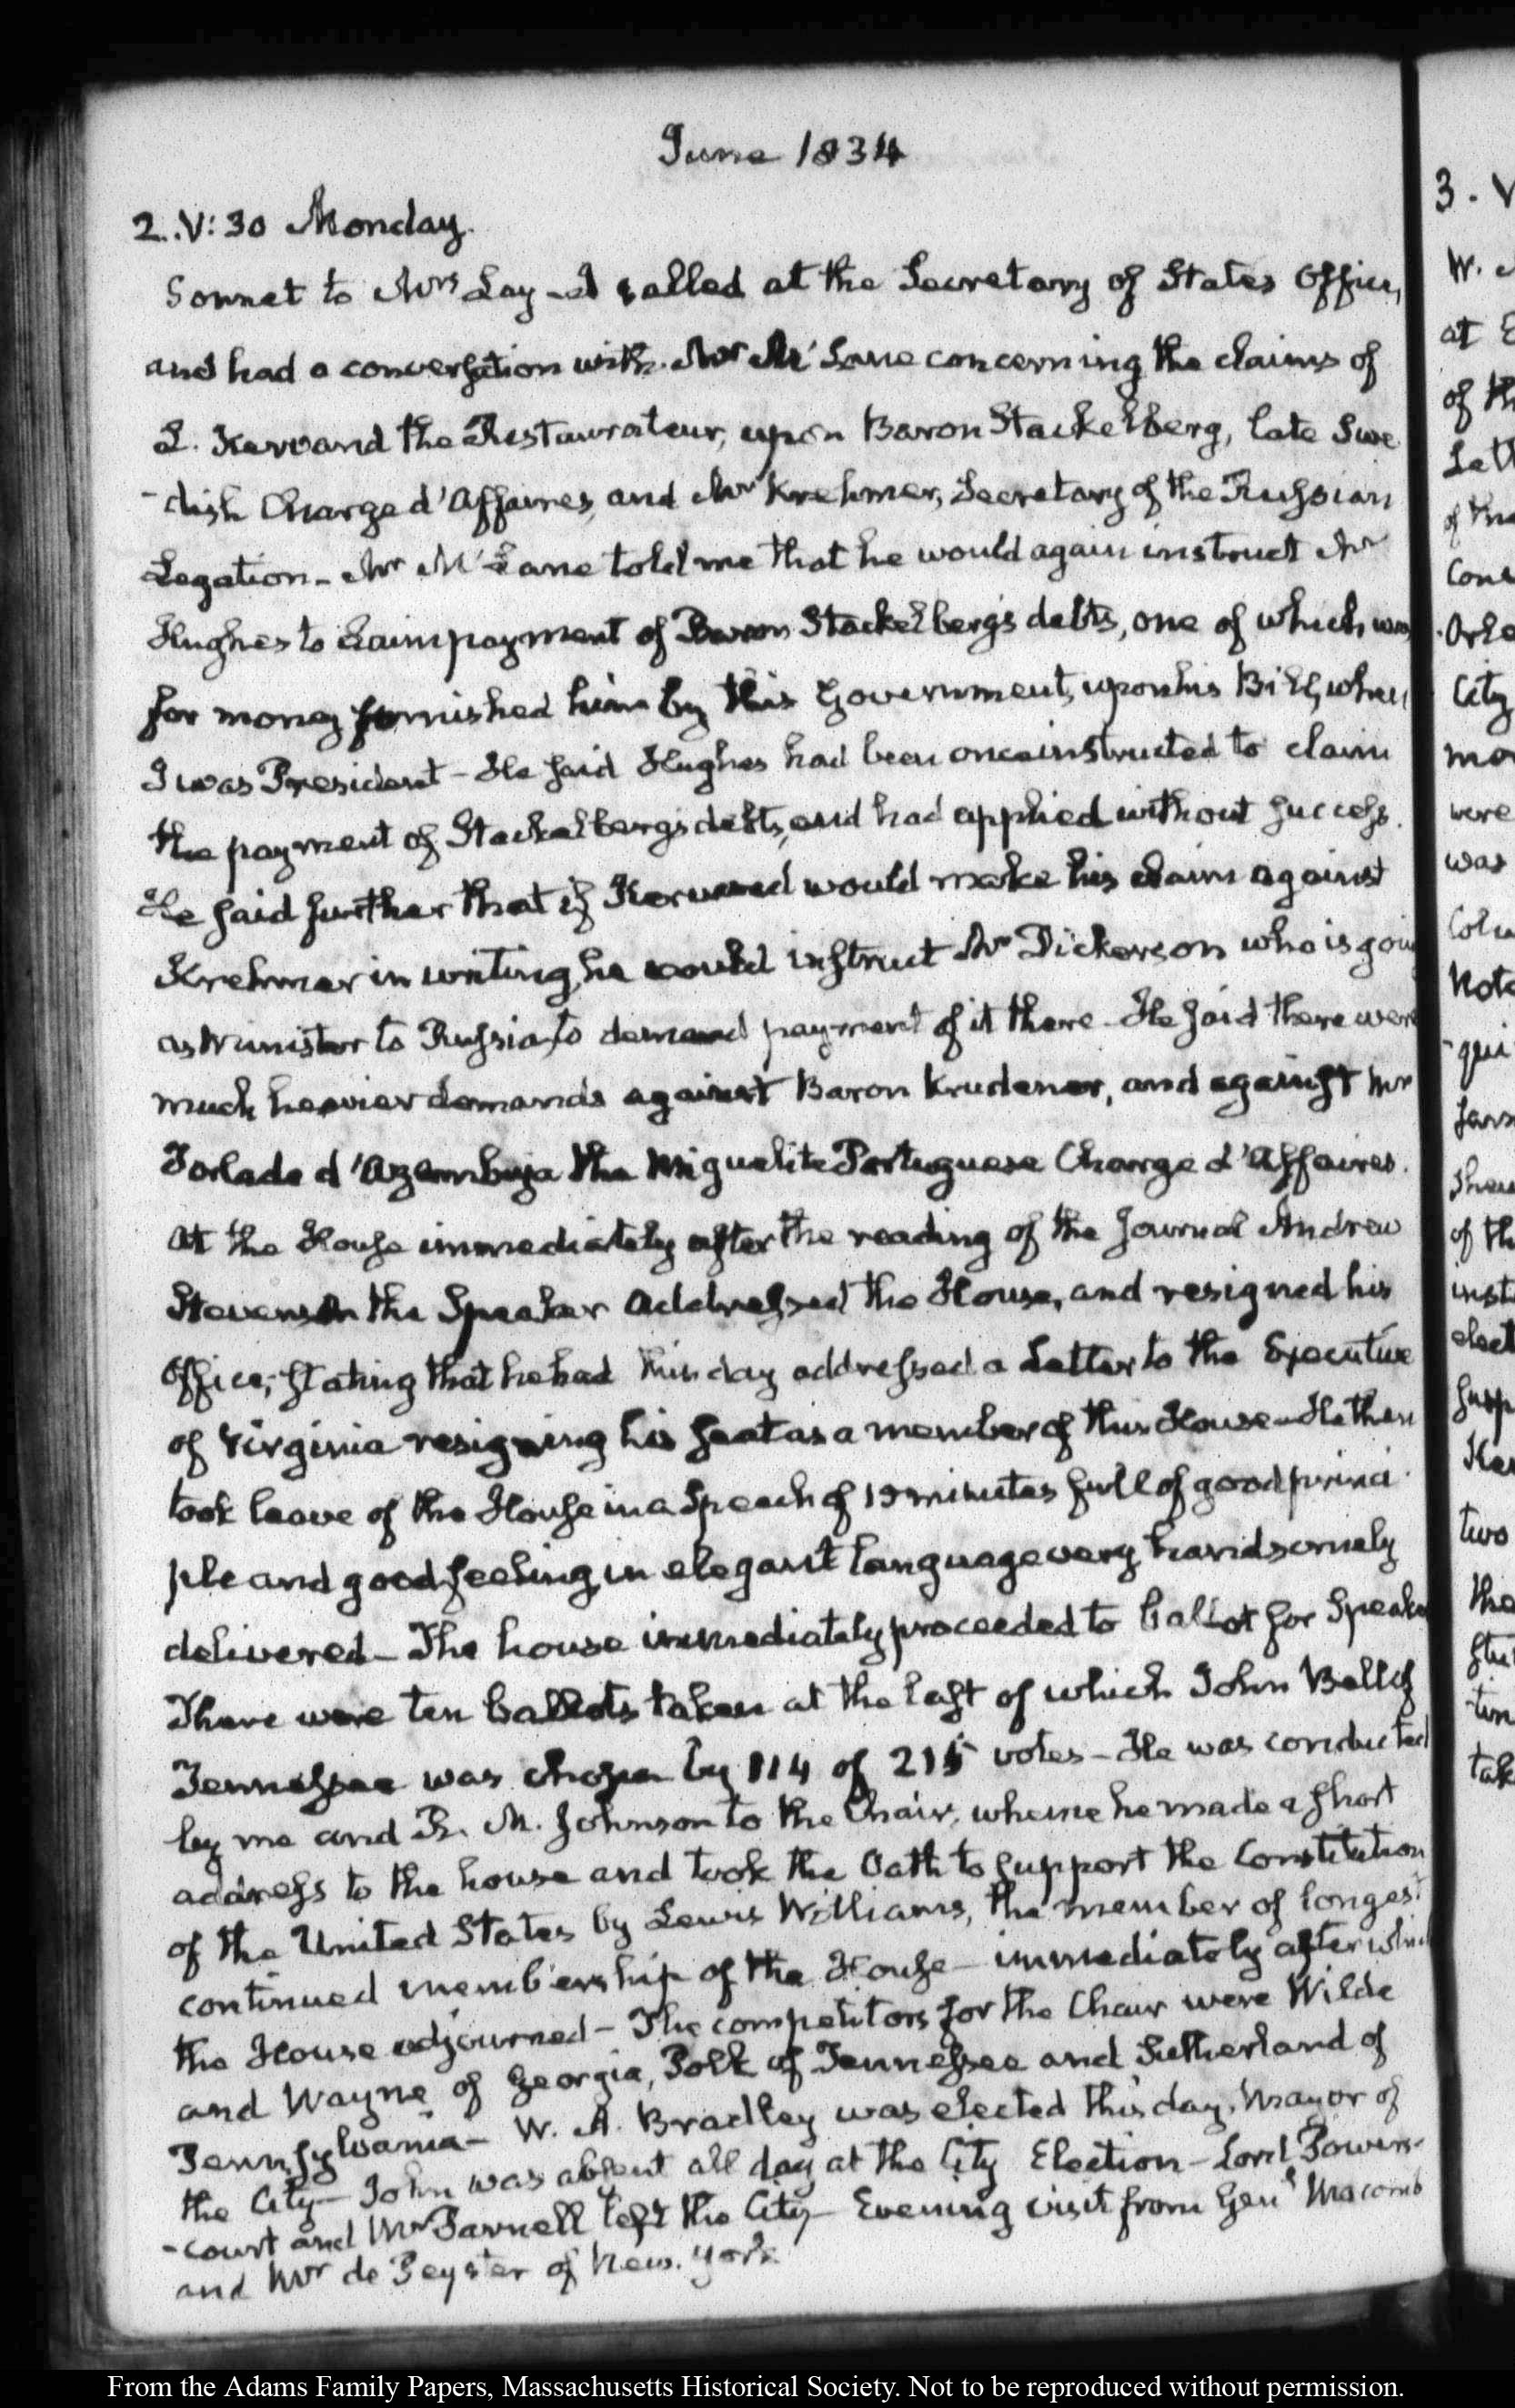 June 1834
2. V: 30 Monday.
Sonnet to Mrs Lay – I called at the Secretary of States Office,
and had a conversation with Mr McLane concerning the claims of
L. Kervand the Restaurateur, upon Baron Stackelberg, late Swe
-dish Chargé d'Affaires, and Mr Krehmer, Secretary of the Russian
Legation – Mr McLane told me that he would again instruct Mr
Hughes to claim payment of Baron Stackelberg's debts, one of which was
for money furnished him by this Government, upon his Bill, when
I was President – He said Hughes had been once instructed to claim
the payment of Stackelbergs debts, and had applied without success.
He said further that if Kervand would make his claim against
Krehmer in writing, he would instruct Mr Dickerson who is going
as Minister to Russia, to demand payment of it there – He said there were
much heavier demands against Baron Krudener, and against Mr
Torlade d'Azambuja the Miguelite Portuguese Charge d'Affaires.
At the House immediately after the reading of the Journal Andrew
Stevenson the Speaker addressed the House, and resigned his
Office; stating that he had this day addressed a Letter to the Executive
of Virginia resigning his seat as a member of this House – He then
took leave of the House in a Speech of 15 minutes full of good princi
ple and good feeling, in elegant language very handsomely
delivered – The house immediately proceeded to ballot for Speaker
There were ten ballots taken at the last of which John Bell of
Tennessee was chosen by 114 of 215 votes – He was conducted
by me and R. M. Johnson to the Chair, whence he made a short
address to the house and took the Oath to support the Constitution
of the United States by Lewis Williams, the member of longest
continued membership of the House – immediately after which
the House adjourned – The competitors for the Chair were Wilde
and Wayne of Georgia, Polk of Tennessee and Sutherland of
Pennsylvania – W. A. Bradley was elected this day, Mayor of
the City – John was absent all day at the City Election – Lord Powers-
-court and Mr Parnell left the City – Evening visit from Genl Macomb
and Mr de Peyster of New-York
3. V
W.
at
of th
Lett
of the
Cons
City
mo
were
was
Colu
Note
-qui
of th
inst
elect
Susp
two
the
tak
From the Adams Family Papers, Massachusetts Historical Society. Not to be reproduced without permission.